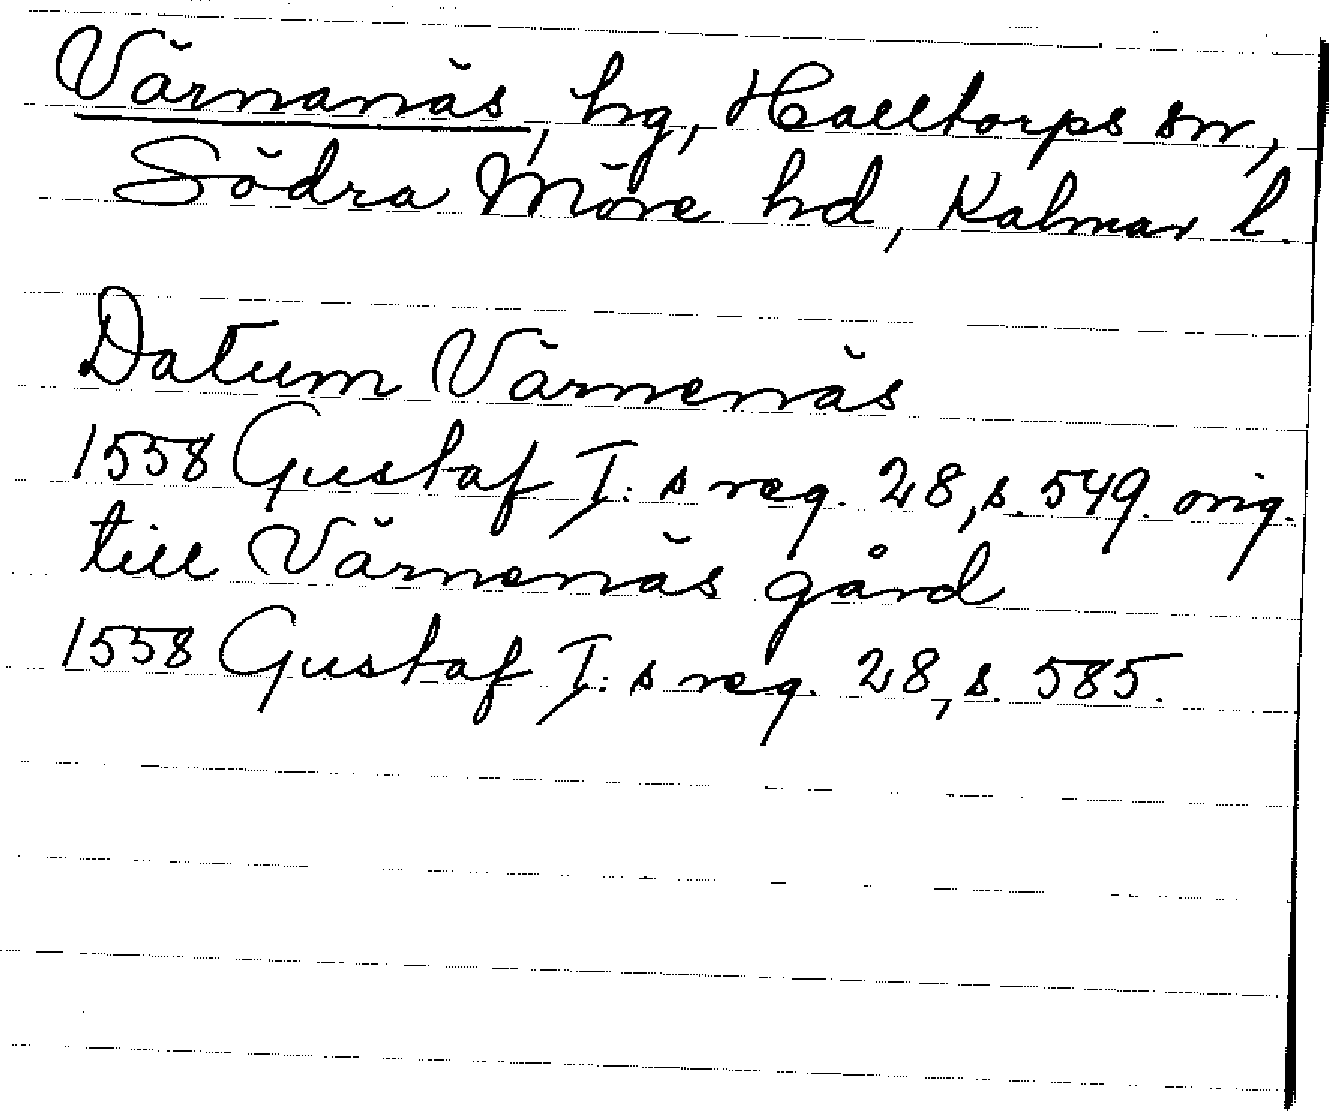 Värnanäs, hg, Halltorps sn,
Södra Möre hd, Kalmar l.
Datum Värnenäs
1558 Gustaf I:s reg. 28, s. 549. orig.
till Värnenäs gård
1558 Gustaf I:s reg. 28, s. 585.